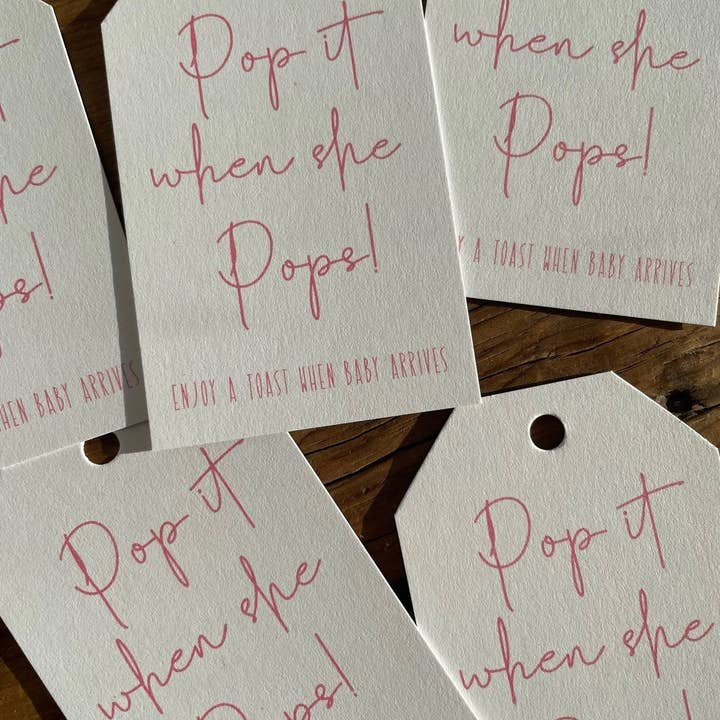 Pop it
when she
Pops!
ENJOY A TOAST WHEN BABY ARRIVES
when she
Pops!
A TOAST WHEN BABY ARRIVES
WHEN BABY ARRIVES
Pop it
when she
Pops!
Pop it
when she